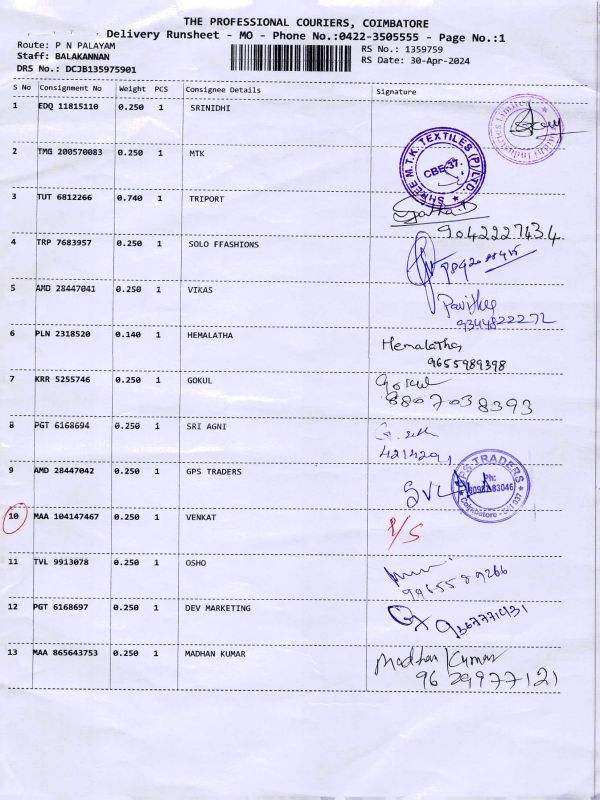 THE PROFESSIONAL COURIERS, COIMBATORE
Delivery Runsheet - MO - Phone No.:0422-3505555 - Page No.:1
Route: P N PALAYAM
RS No.: 1359759
Staff: BALAKANNAN
RS Date: 30-Apr-2024
DRS No.: DCJB135975901
S No Consignment No Weight PCS Consignee Details Signature
1 EDQ 11815110 0.250 1 SRINIDHI
2 TMG 200570083 0.250 1 MTK
SHREE M.T.K. TEXTILES (P) LTD.
CBE-37.
3 TUT 6812266 0.740 1 TRIPORT
9042227434
4 TRP 7683957 0.250 1 SOLO FFASHIONS
5 AMD 28447041 0.250 1 VIKAS
9344822272
6 PLN 2318520 0.140 1 HEMALATHA
Hemalatha
9655989398
7 KRR 5255746 0.250 1 GOKUL
Gokul
8807038393
8 PGT 6168694 0.250 1 SRI AGNI
4214291
9 AMD 28447042 0.250 1 GPS TRADERS
GPS TRADERS
Ph:
Coimbatore - 641 037
10 MAA 104147467 0.250 1 VENKAT
P/S
11 TVL 9913078 0.250 1 OSHO
9965589266
12 PGT 6168697 0.250 1 DEV MARKETING
9367771431
13 MAA 865643753 0.250 1 MADHAN KUMAR
Madhan Kumar
9629977121